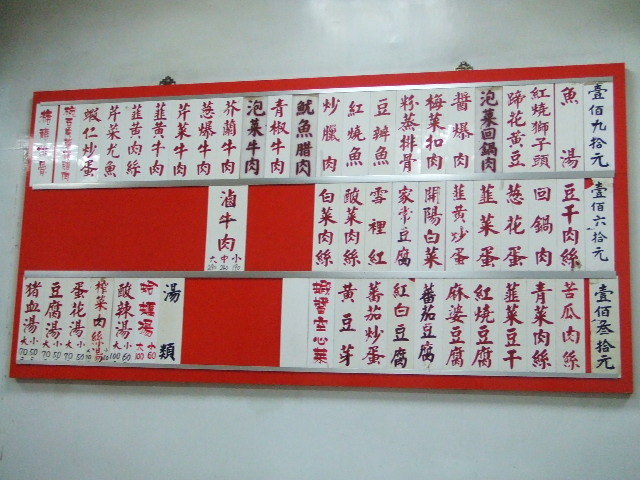 壹佰九拾元
魚湯
紅燒獅子頭
蹄花黃豆
泡菜回鍋肉
醬爆肉
梅菜扣肉
粉蒸排骨
豆瓣魚
紅燒魚
炒臘肉
魷魚腊肉
青椒牛肉
泡菜牛肉
芥蘭牛肉
蔥爆牛肉
芹菜牛肉
韮黃牛肉
韮黃肉絲
芹菜尤魚
蝦仁炒蛋
壹佰六拾元
豆干肉絲
回鍋肉
蔥花蛋
韮菜蛋
韮黃炒蛋
開陽白菜
家常豆腐
雪裡紅
酸菜肉絲
白菜肉絲
滷牛肉 大 中 小
壹佰叁拾元
苦瓜肉絲
青菜肉絲
韮菜豆干
紅燒豆腐
麻婆豆腐
蕃茄豆腐
紅白豆腐
蕃茄炒蛋
黃豆芽
蝦醬空心菜
湯類
蛤蜊湯 大100 小60
酸辣湯 大100 小60
榨菜肉絲湯
蛋花湯 大70 小50
豆腐湯 大70 小50
豬血湯 大70 小50